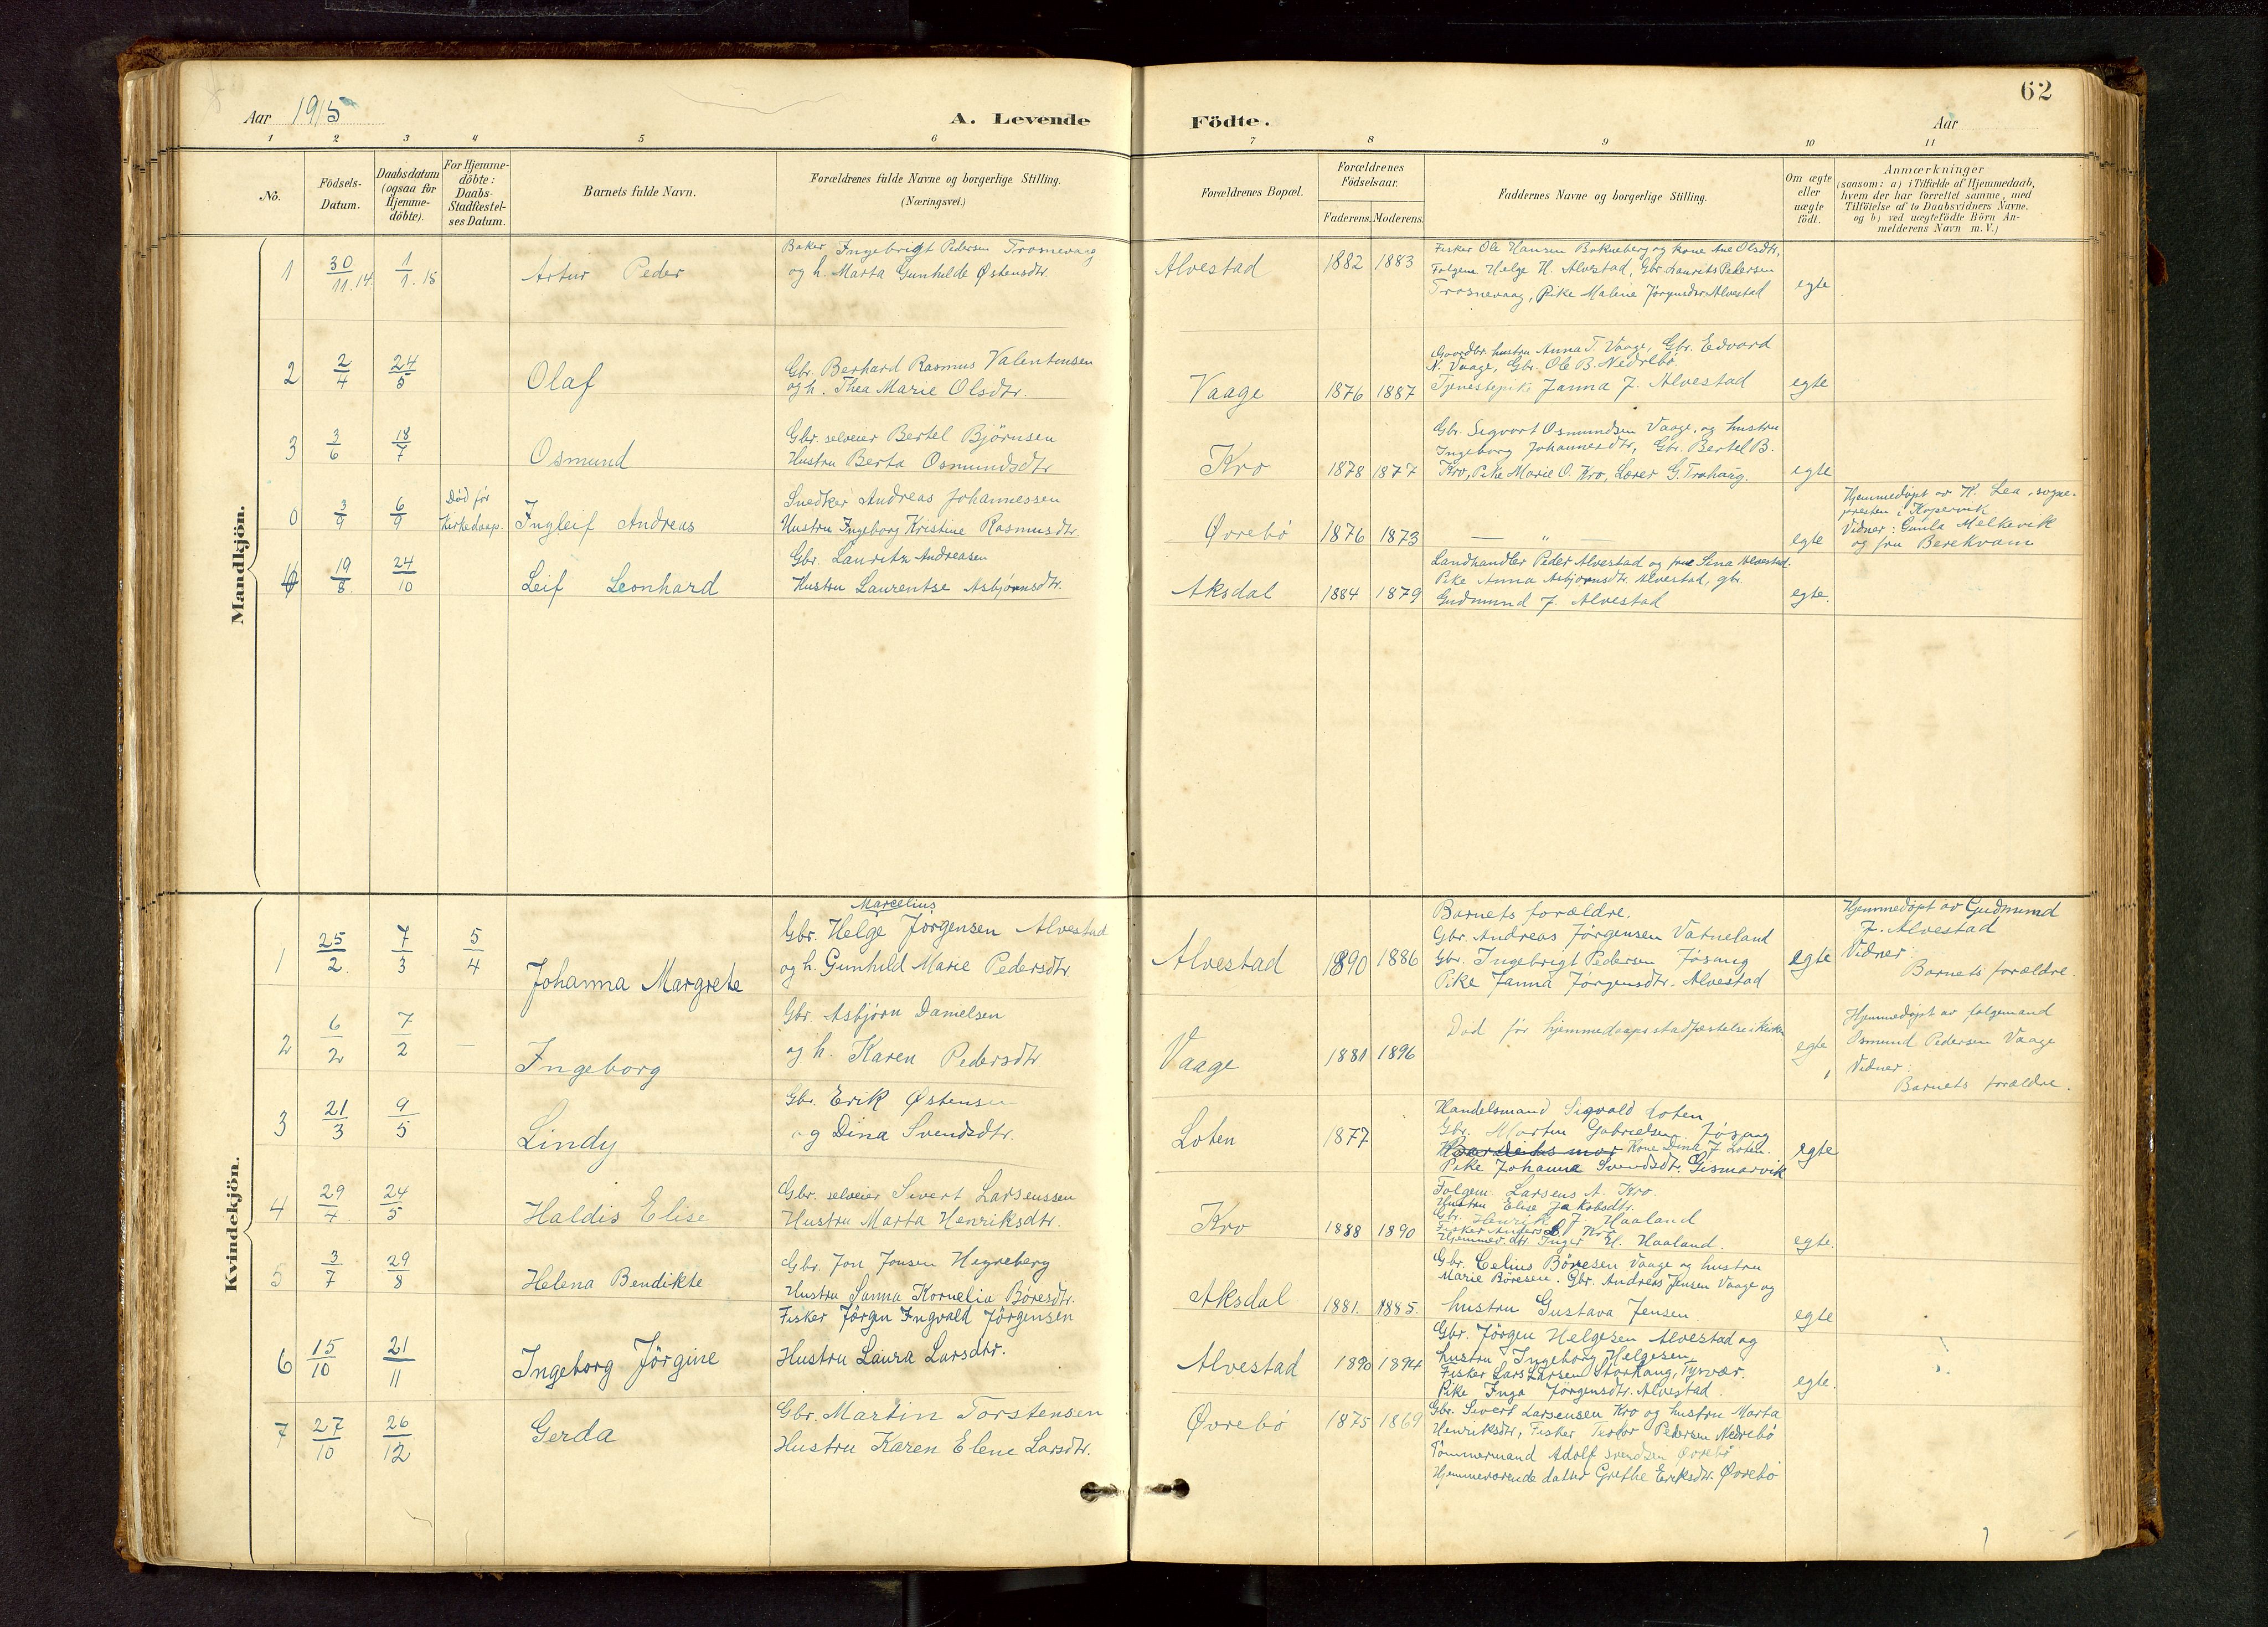 62
Aar 1915
A. Levende
Födte.
Aar
1 2 3 4 5 6 7 8 9 10 11
No.
Födsels-
Datum.
Daabsdatum
(ogsaa for
Hjemme-
döbte).
For Hjemme-
döbte:
Daabs-
Stadfæstel-
ses Datum.
Barnets fulde Navn.
Forældrenes fulde Navne og borgerlige Stilling.
(Næringsvei.)
Forældrenes Bopæl.
Forældrenes
Födselsaar.
Faderens. Moderens.
Faddernes Navne og borgerlige Stilling.
Om ægte
eller
uægte
födt.
Anmærkninger
(saasom: a) i Tilfælde af Hjemmedaab,
hvem der har forrettet samme, med
Tilföielse af to Daabsvidners Navne,
og b) ved uægtefödte Börn An-
melderens Navn m. V.)
Mandkjön.
1
30/11.14.
1/1.15
Artur Peder
Baker Ingebrigt Pedersen Trosnevaag
og h. Marta Gunhilde Østensdtr.
Alvestad
1882 1883
Fisker Ole Hansen Bokneberg og kone Ane Olsdtr,
Folgem. Helge H. Alvestad, Gbr. Laurits Pedersen
Trosnevaag, Pike Malene Jörgensdtr Alvestad
egte
2
2/4
24/5
Olaf
Gbr. Berhard Rasmus Valentinsen
og h. Thea Marie Olsdtr.
Vaage
1876 1887
Gaardbr. hustru Anna T. Vaage, Gbr. Edvard
N. Vaage, Gbr. Ole B. Nedrebö
Tjenestepike Janna J. Alvestad
egte
3
3/6
18/7
Osmund
Gbr. selveier Bertel Björnsen
Hustru Berta Osmundsdtr
Kro
1878 1877
Gbr. Sigvart Osmundsen Vaage, og hustru
Ingeborg Johannesdtr, Gbr. Bertel B.
Kro, Pike Marie O. Kro, Lærer G. Trohaug.
egte
0
3/9
6/9
Död för
kirkedaap.
Ingleif Andreas
Snedker Andreas Johannessen
Hustru Ingeborg Kristine Rasmusdtr.
Øvrebö
1876 1873
— " —
egte
Hjemmedöpt av K. Lea, sogne-
presten i Kopervik
Vidner: Gunla Melkevik
og fru Berekvam
4
19/8.
24/10
Leif Leonhard
Gbr. Lauritz Andreasen
Hustru Laurentse Asbjörnsdtr.
Aksdal
1884 1879
Landhandler Peder Alvestad og frue Sina Alvestad.
Pike Anna Asbjörnsdtr. Alvestad, gbr.
Gudmund J. Alvestad
egte.
Kvindekjön.
1
25/2
7/3
5/4
Johanna Margrete
Marcelius
Gbr. Helge Jörgensen Alvestad
og h. Gunhild Marie Pedersdtr.
Alvestad
1890 1886
Barnets forældre.
Gbr. Andreas Jörgensen Vatneland
Gbr. Ingebrigt Pedersen Jösang
Pike Janna Jörgensdtr. Alvestad
egte
Hjemmedöpt av Gudmund
J. Alvestad
Vidner:
Barnets forældre.
2
6/2
7/2
—
Ingeborg
Gbr. Asbjörn Danielsen
og h. Karen Pedersdtr
Vaage
1881 1896
Död för hjemmedaapsstadfæstelse i kirken
egte
Hjemmedöpt av folgemand
Osmund Pedersen Vaage
Vidner:
Barnets forældre.
3
21/3
9/5
Lindy
Gbr. Erik Østensen
og Dina Svendsdtr.
Loten
1877
Handelsmand Sigvald Loten
Gbr. Martin Gabrielsen Jösang
Kone Dina J. Loten.
Pike Johanna Svendsdtr. Gismarvik
egte
4
29/4
24/5
Haldis Elise
Gbr. selveier Sivert Larsenssen
Hustru Marta Henriksdtr.
Kro
1888 1890
Folgem. Larsens A. Kro.
Hustru Elise Jakobsdtr.
Gbr. Henrik J. Haaland
Fisker Anders L. Kro
Hjemmev. dtr. Inger H. Haaland.
egte.
5
3/7
29/8
Helena Bendikte
Gbr. Jon Jonsen Hegreberg
Hustru Sanna Kornelia Böresdtr.
Aksdal
1881. 1885.
Gbr. Celius Böresen Vaage og hustru
Marie Böresen. Gbr. Andreas Jensen Vaage og
hustru Gustava Jensen
egte
6
15/10
21/11
Ingeborg Jörgine
Fisker Jörgen Ingvald Jörgensen
Hustru Laura Larsdtr.
Alvestad
1890 1894
Gbr. Jörgen Helgesen Alvestad og
hustru Ingeborg Helgesen
Fisker Lars Larsen Storhaug, Tysvær.
Pike Inga Jörgensdtr. Alvestad.
egte.
7
27/10
26/12
Gerda
Gbr. Martin Torstensen
Hustru Karen Elene Larsdtr.
Øvrebö
1875 1869
Gbr. Sivert Larsensen Kro og hustru Marta
Henriksdtr, Fisker Teodor Pedersen Nedrebö
Tömmermand Adolf Svendsen Øvrebö
Hjemmeværende datter Grethe Eriksdtr. Øvrebö